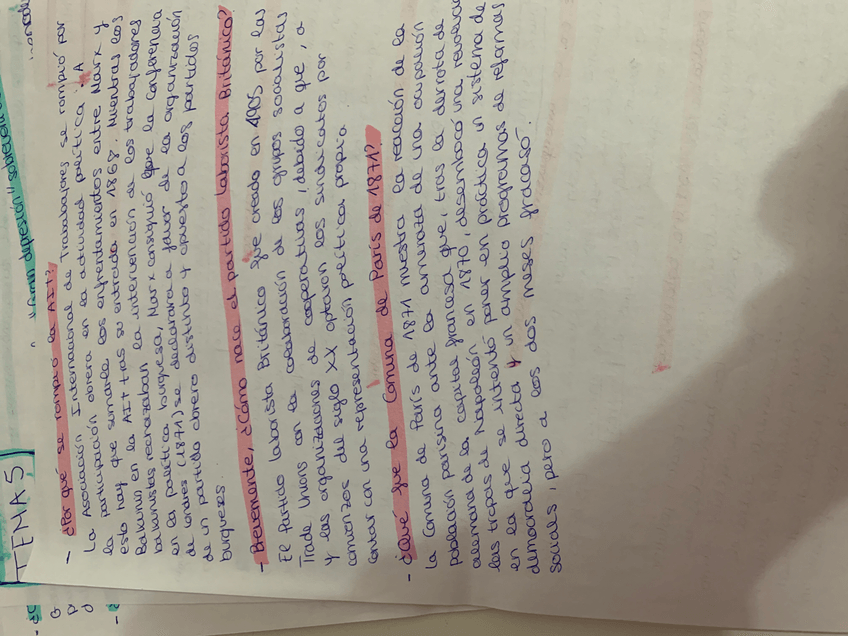 TEMA 5
- ¿Por qué se rompió la AIT?
La Asociación Internacional de Trabajadores se rompió por
la participación obrera en la actividad política. A
esto hay que sumarle los enfrentamientos entre Marx y
Bakunin en la AIT tras su entrada en 1868. Mientras los
bakunistas rechazaban la intervención de los trabajadores
en la política burguesa, Marx consiguió que la conferencia
de Londres (1871) se declarara a favor de la organización
de un partido obrero distinto y opuesto a los partidos
burgueses.
- Brevemente, ¿Cómo nace el partido laborista Británico?
El Partido laborista Británico fue creado en 1905 por las
Trade Unions con la colaboración de los grupos socialistas
y las organizaciones de cooperativas, debido a que, a
comienzos del siglo XX optaron los sindicatos por
contar con una representación política propia.
- ¿Qué fue la Comuna de París de 1871?
La Comuna de París de 1871 muestra la reacción de la
población parisina ante la amenaza de una ocupación
alemana de la capital francesa que, tras la derrota de
las tropas de Napoleón en 1870, desembocó una
en la que se intentó poner en práctica un sistema de
democracia directa y un amplio programas de reformas
sociales, pero a los dos meses fracasó.
"Gran depresión"